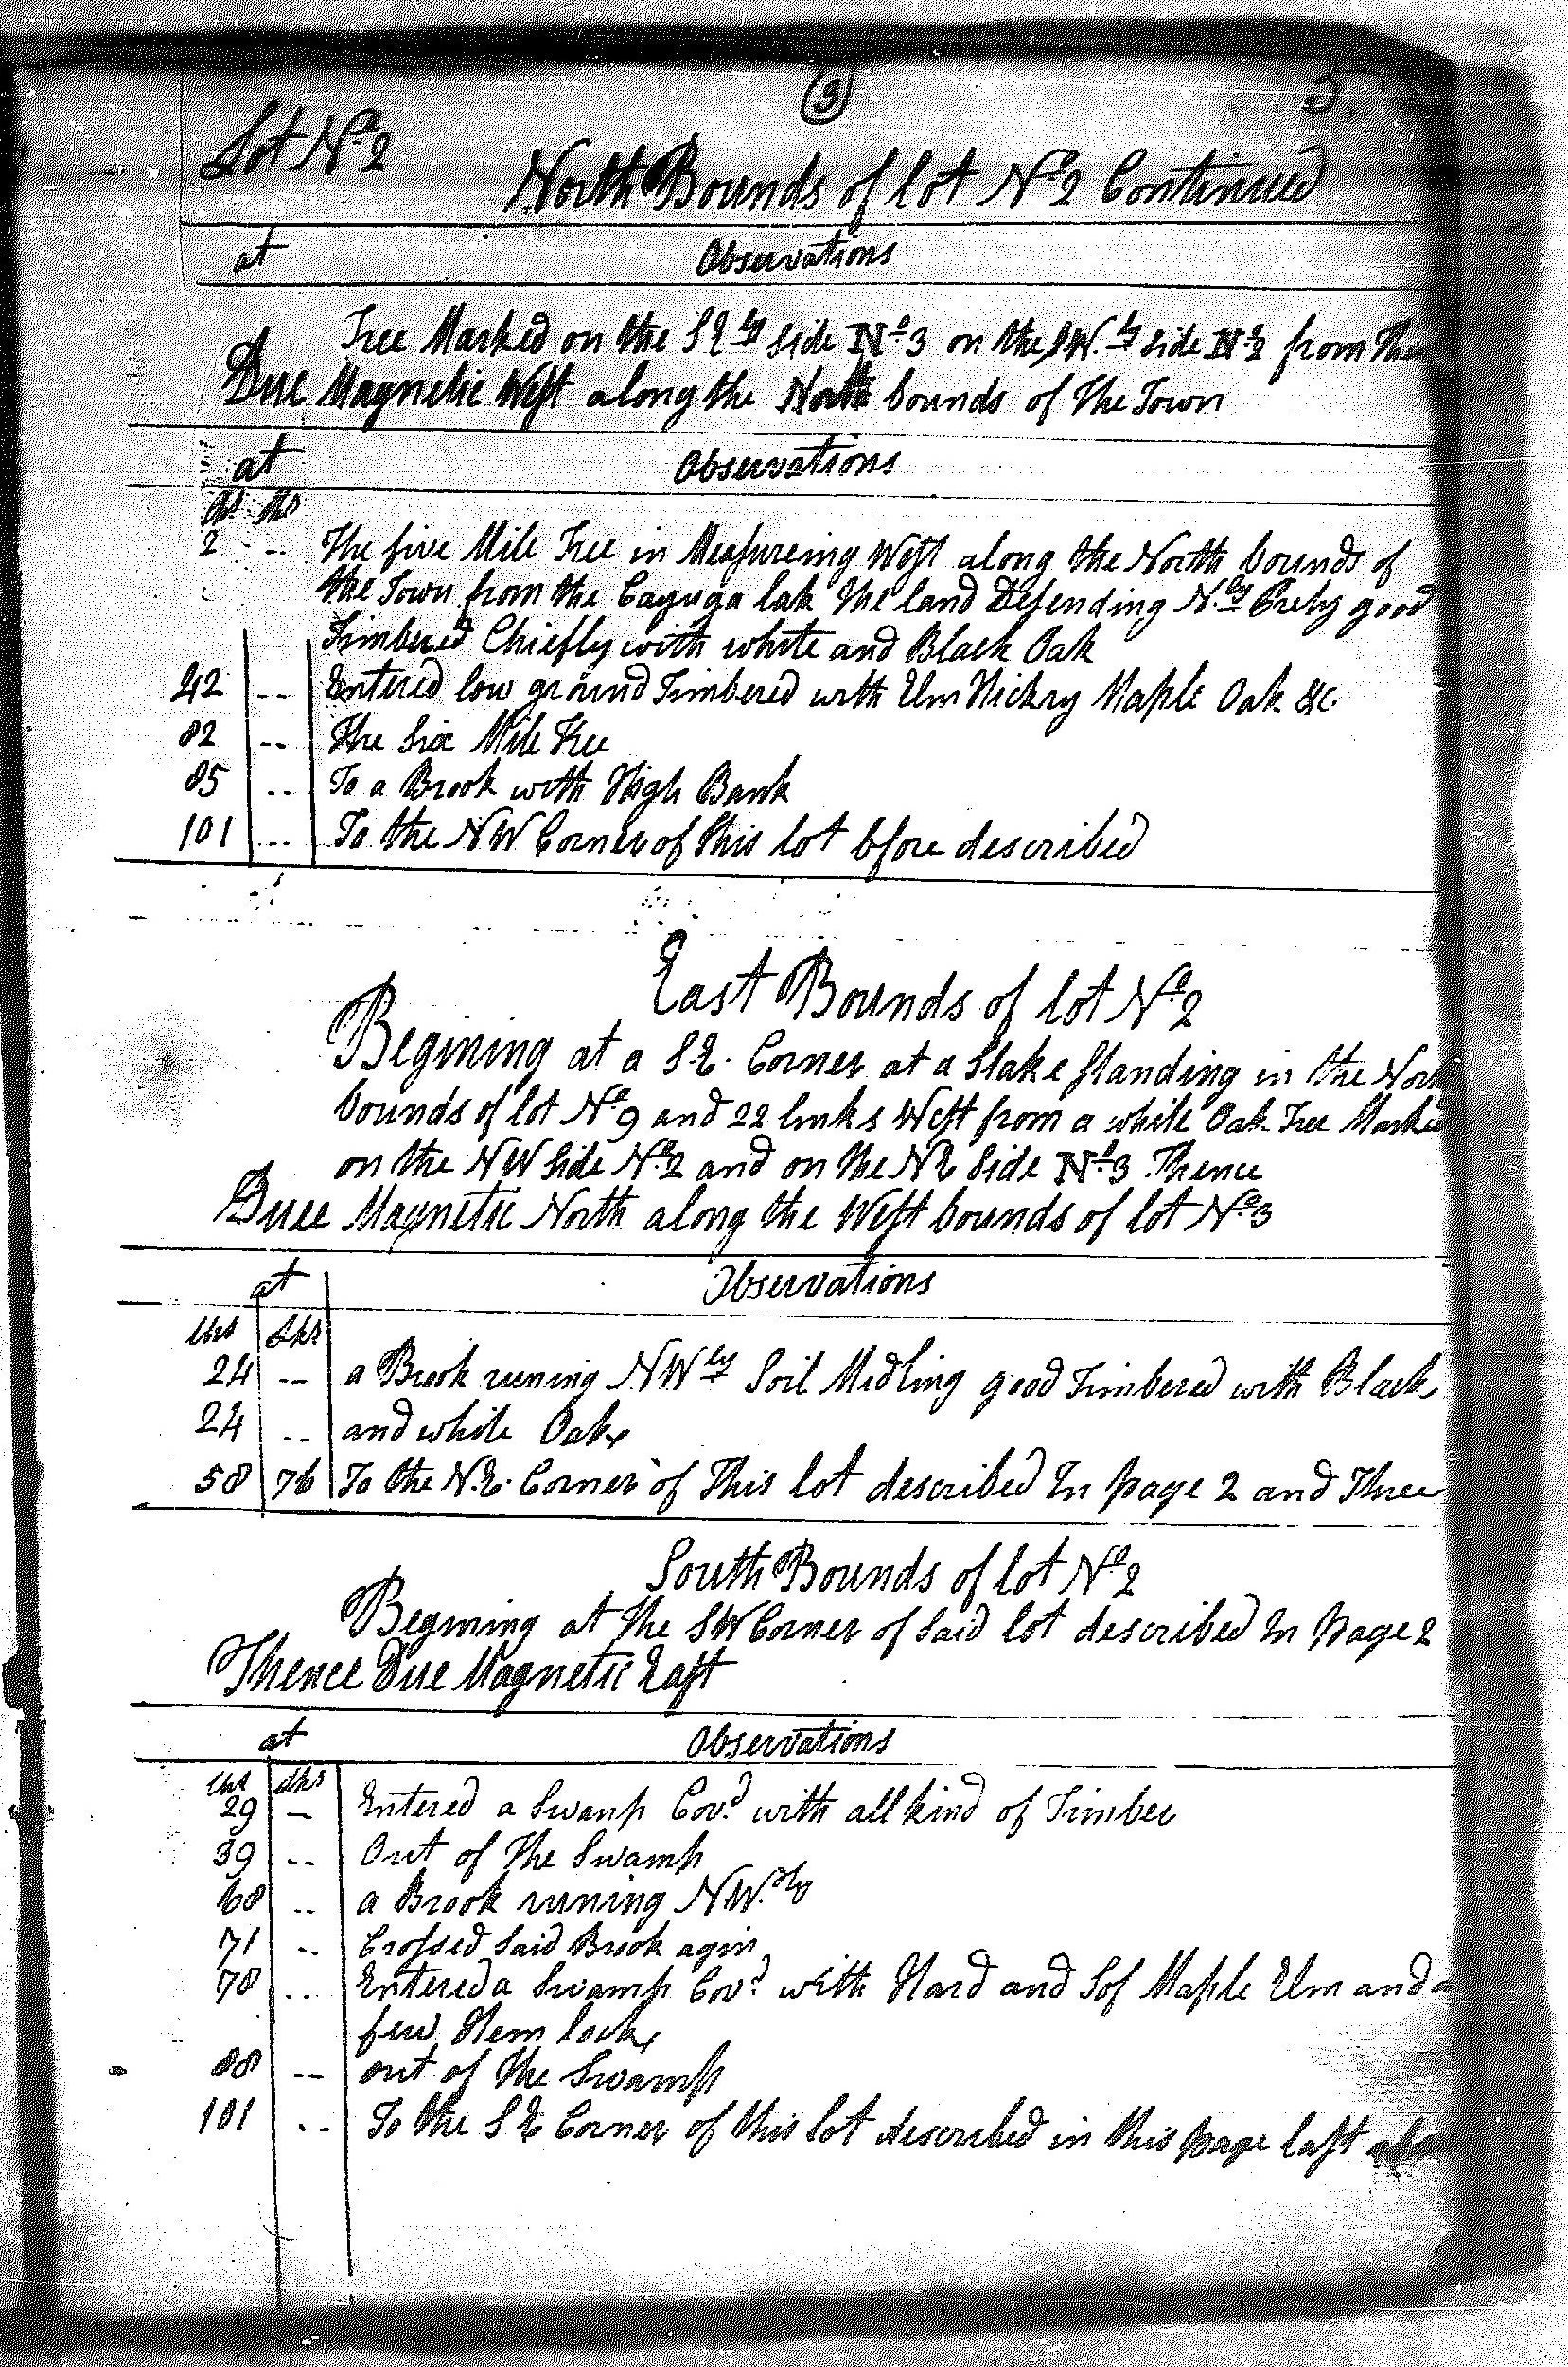 3
Lot No 2
North Bounds of lot No 2 Continued
at Observations
Tree Marked on the SEly Side No 3 on the SW.ly Side No 2 from
Due Magnetic West along the North bounds of The Town
at Observations
chs lks
2 -- The five Mile Tree in Measureing West along the North bounds of
the Town from the Cayuga lak the land Desending N.ly Prety good
Timbered Chiefly with white and Black Oak
42 -- Entered low ground Timbered with Elm Hickry Maple Oak &c.
82 -- The Six Mile Tree
85 -- To a Brook with High Bank
101 -- To the NW Corner of this lot bfore described
East Bounds of lot No 2
Begining at a SE. Corner at a Stake Standing in the
bounds of lot No 9 and 22 links West from a white Oak Tree
on the NW Side No 2 and on the NE Side No 3 Thence
Duee Magnetic North along the West bounds of lot No 3
at Observations
chs Lks
24 -- a Brook runing NWly Soil Midling good Timbered with Black
24 -- and white Oak
58 76 To the N.E. Corner of This lot described In page 2 and Three
South Bounds of lot No 2
Begining at the SW Corner of Said lot described In Page 2
Thence Due Magnetic East
at Observations
chs Lks
29 - Entered a Swamp Cov.d with all kind of Timber
39 -- Out of the Swamp
68 -- a Brook runing NW.ly
71 -- Crossed Said Brook agin
78 -- Entered a Swamp Cov.d with Hard and Sof Maple Elm and a
few Hem lock
88 -- out of the Swamp
101 -- To the SE Corner of this lot described in this page last